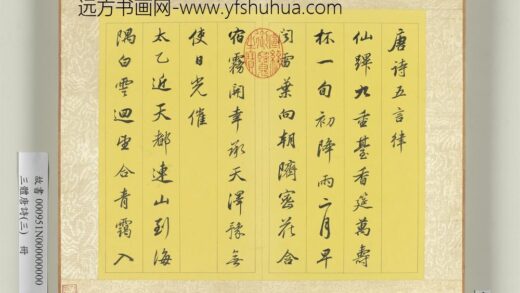 远方书画网-www.yfshuhua.com
唐诗五言律
仙蹕九重臺香筵萬壽
杯一旬初降雨二月早
聞雷葉向朝隮密花含
宿霧開幸承天澤豫無
使日光催
太乙近天都連山到海
隅白雲迴望合青靄入
故書 000951N000000000
三體唐詩(三) 冊